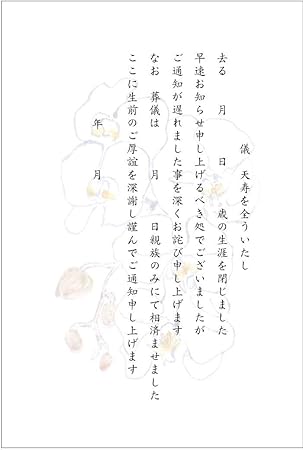 儀 天寿を全ういたし
去る 月 日 歳の生涯を閉じました
早速お知らせ申し上げるべき処でございましたが
ご通知が遅れました事を深くお詫び申し上げます
なお 葬儀は 月 日親族のみにて相済ませました
ここに生前のご厚誼を深謝し謹んでご通知申し上げます
年 月